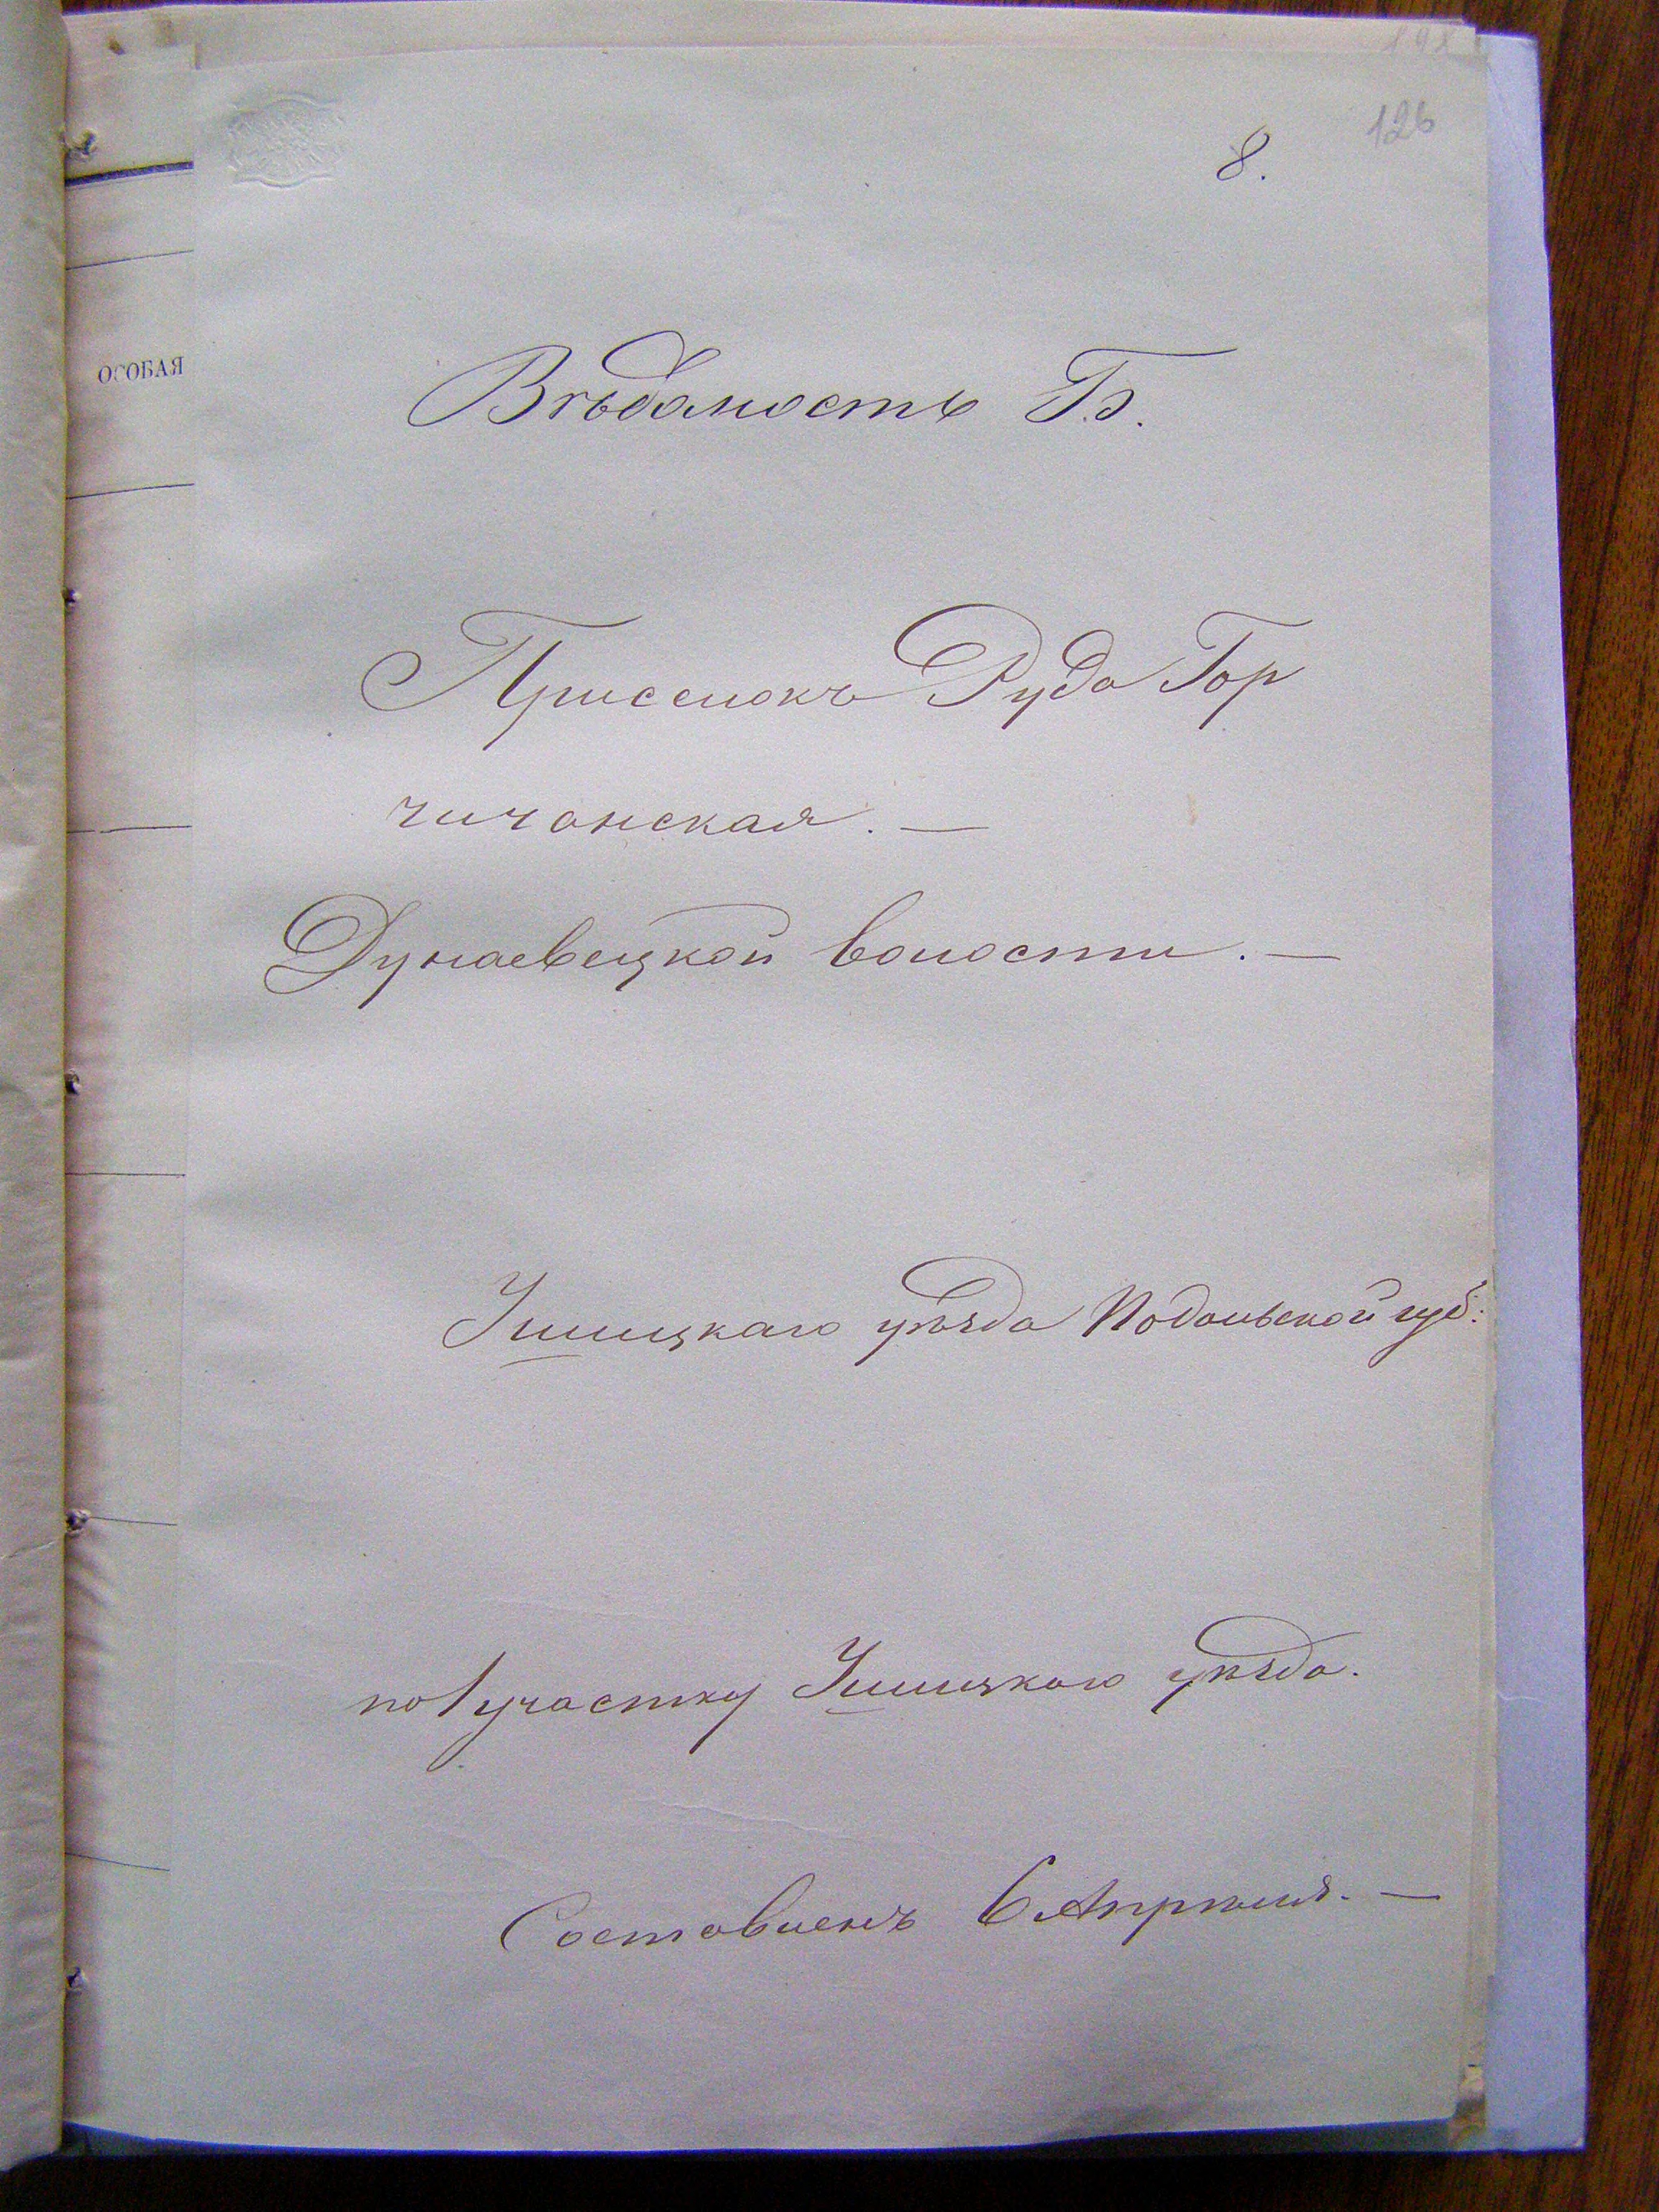 126
8.
ОСОБАЯ
Вѣдомость Б.
Приселокъ Руда Гор
чичанская. —
Дунаевецкой волости. —
Ушицкаго уѣзда Подольской губ:
по 1 участку Ушицкаго уѣзда.
Составленъ 6 Апрѣля. —